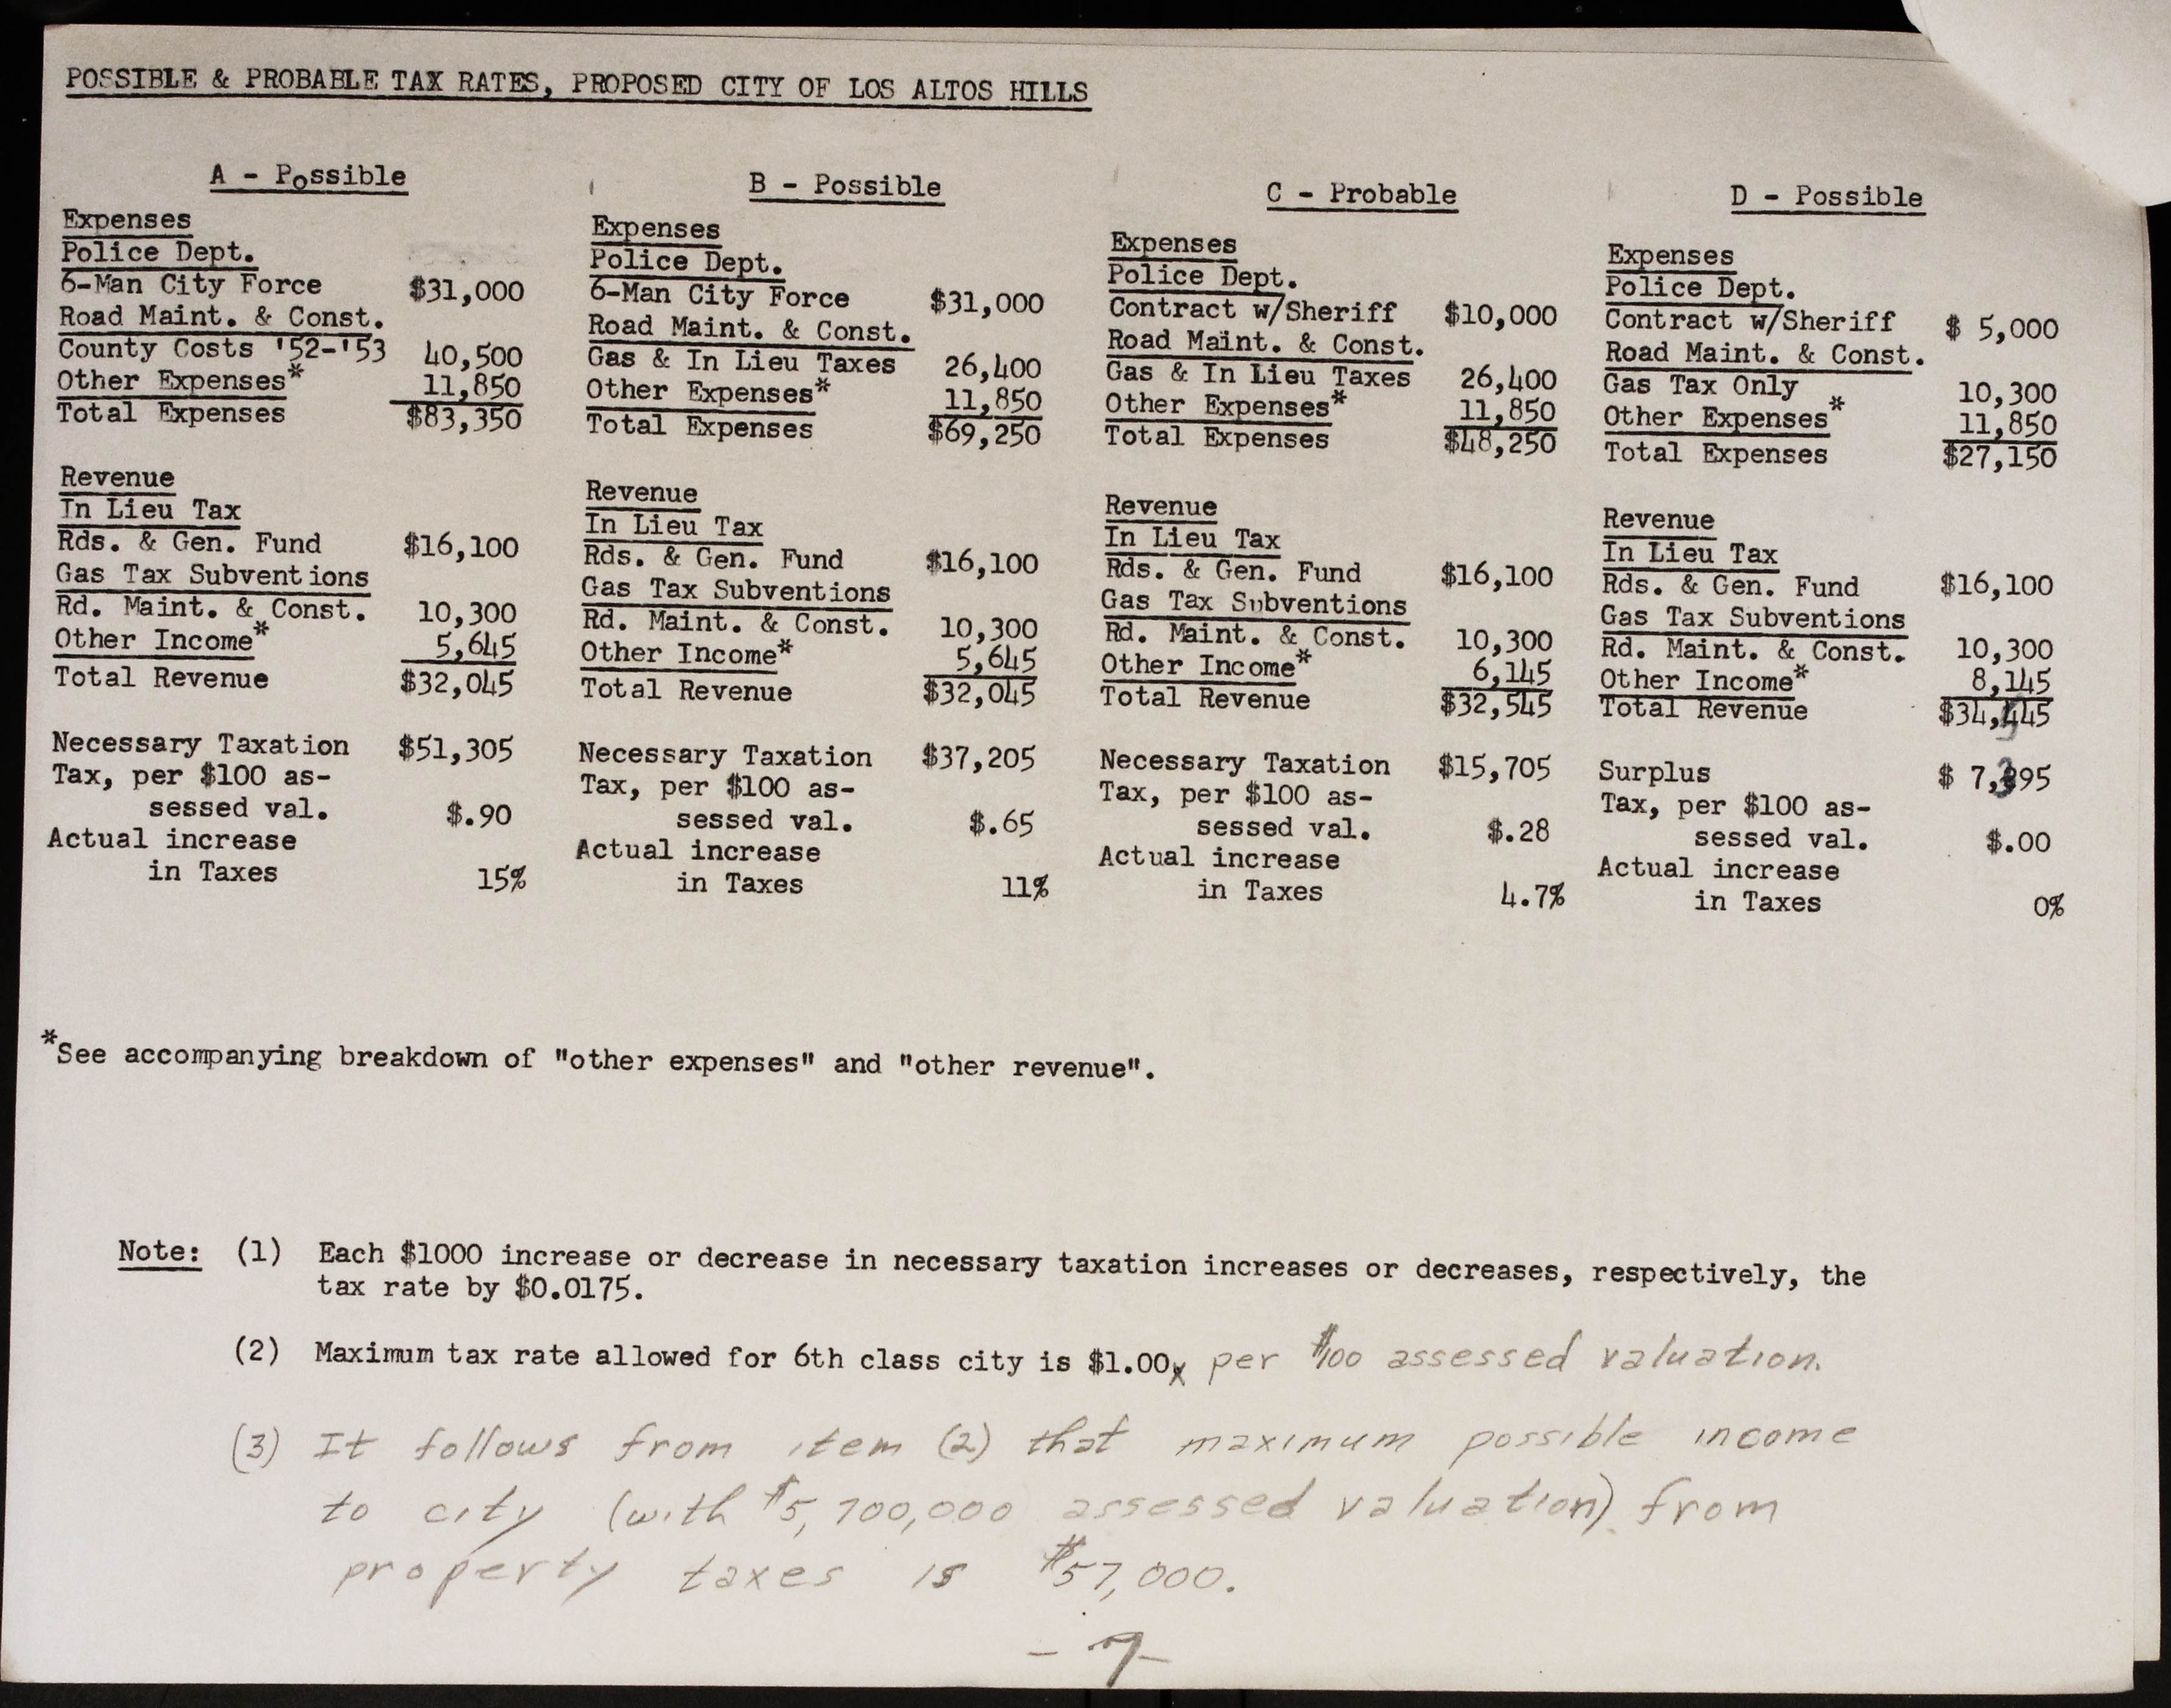 POSSIBLE & PROBABLE TAX RATES, PROPOSED CITY OF LOS ALTOS HILLS
A - Possible
Expenses
Police Dept.
6-Man City Force $31,000
Road Maint. & Const.
County Costs '52-'53 40,500
Other Expenses* 11,850
Total Expenses $83,350
Revenue
In Lieu Tax
Rds. & Gen. Fund $16,100
Gas Tax Subventions
Rd. Maint. & Const. 10,300
Other Income* 5,645
Total Revenue $32,045
Necessary Taxation $51,305
Tax, per $100 as-
sessed val. $.90
Actual increase
in Taxes 15%
B - Possible
Expenses
Police Dept.
6-Man City Force $31,000
Road Maint. & Const.
Gas & In Lieu Taxes 26,400
Other Expenses* 11,850
Total Expenses $69,250
Revenue
In Lieu Tax
Rds. & Gen. Fund $16,100
Gas Tax Subventions
Rd. Maint. & Const. 10,300
Other Income* 5,645
Total Revenue $32,045
Necessary Taxation $37,205
Tax, per $100 as-
sessed val. $.65
Actual increase
in Taxes 11%
C - Probable
Expenses
Police Dept.
Contract w/Sheriff $10,000
Road Maint. & Const.
Gas & In Lieu Taxes 26,400
Other Expenses* 11,850
Total Expenses $48,250
Revenue
In Lieu Tax
Rds. & Gen. Fund $16,100
Gas Tax Subventions
Rd. Maint. & Const. 10,300
Other Income* 6,145
Total Revenue $32,545
Necessary Taxation $15,705
Tax, per $100 as-
sessed val. $.28
Actual increase
in Taxes 4.7%
D - Possible
Expenses
Police Dept.
Contract w/Sheriff $ 5,000
Road Maint. & Const.
Gas Tax Only 10,300
Other Expenses* 11,850
Total Expenses $27,150
Revenue
In Lieu Tax
Rds. & Gen. Fund $16,100
Gas Tax Subventions
Rd. Maint. & Const. 10,300
Other Income* 8,145
Total Revenue $34,545
Surplus $ 7,395
Tax, per $100 as-
sessed val. $.00
Actual increase
in Taxes 0%
*See accompanying breakdown of "other expenses" and "other revenue".
Note: (1) Each $1000 increase or decrease in necessary taxation increases or decreases, respectively, the
tax rate by $0.0175.
(2) Maximum tax rate allowed for 6th class city is $1.00 per $100 assessed valuation.
(3) It follows from item (2) that maximum possible income
to city (with $5,700,000 assessed valuation) from
property taxes is $57,000.
- 7 -